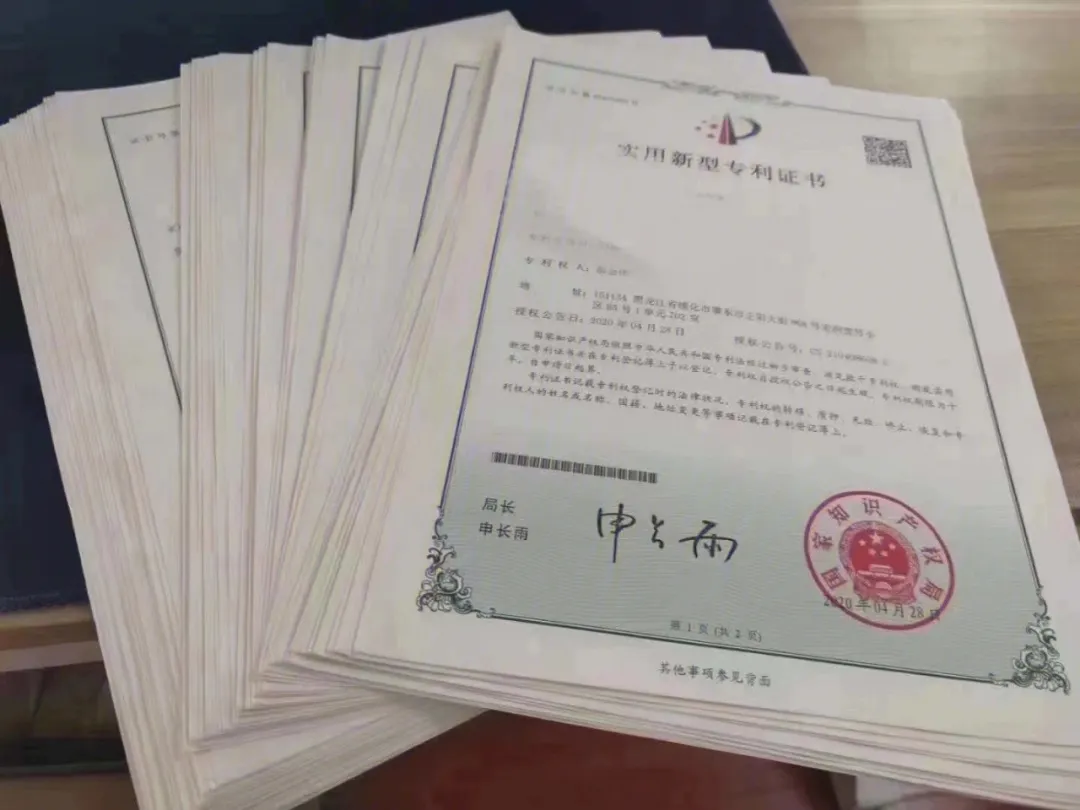 实用新型专利证书
专利权人：
地 址：151134 黑龙江省绥化市肇东市正阳大街
区 号1单元202室
授权公告日：2020年04月28日 授权公告号：CN
国家知识产权局依照中华人民共和国专利法经过初步审查，决定授予专利权，颁发实用
新型专利证书并在专利登记簿上予以登记。专利权自授权公告之日起生效。专利权期限为十
年，自申请日起算。
专利证书记载专利权登记时的法律状况。专利权的转移、质押、无效、终止、恢复和专
利权人的姓名或名称、国籍、地址变更等事项记载在专利登记簿上。
局长
申长雨
申长雨
国家知识产权局
2020年04月28日
第1页(共2页)
其他事项参见背面